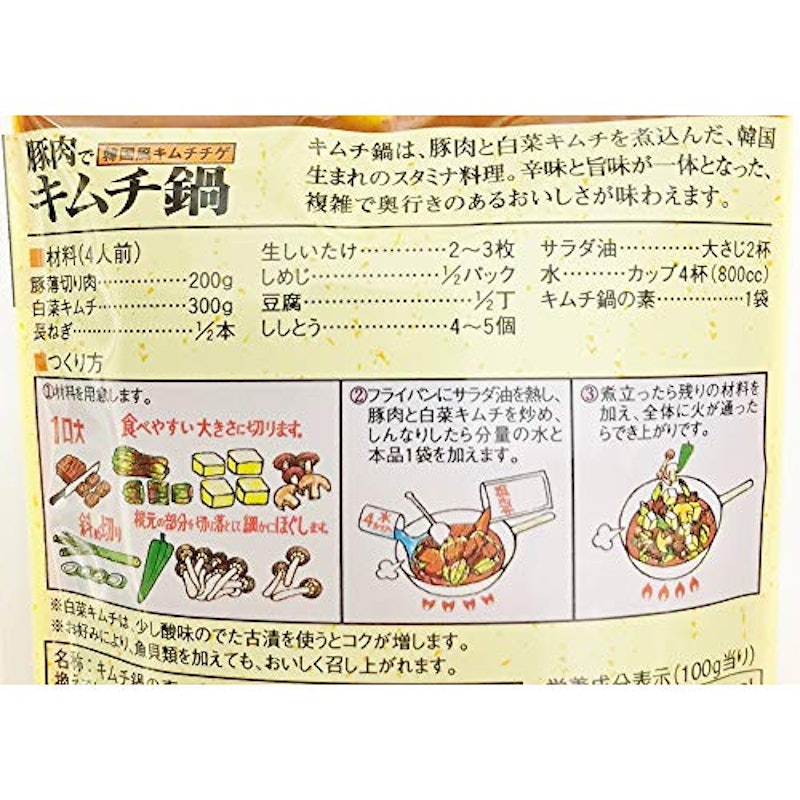 豚肉で 韓国風キムチチゲ
キムチ鍋
キムチ鍋は、豚肉と白菜キムチを煮込んだ、韓国
生まれのスタミナ料理。辛味と旨味が一体となった、
複雑で奥行きのあるおいしさが味わえます。
材料(4人前)
豚薄切り肉…………200g
白菜キムチ…………300g
長ねぎ…………1/2本
生しいたけ…………2〜3枚
しめじ…………1/2パック
豆腐…………1/2丁
ししとう…………4〜5個
サラダ油…………大さじ2杯
水………カップ4杯(800cc)
キムチ鍋の素…………1袋
つくり方
①材料を用意します。
1口大 食べやすい大きさに切ります。
斜め切り 根元の部分を切り落として細かにほぐします。
②フライパンにサラダ油を熱し、
豚肉と白菜キムチを炒め、
しんなりしたら分量の水と
本品1袋を加えます。
水
4カップ
③煮立ったら残りの材料を
加え、全体に火が通った
らでき上がりです。
※白菜キムチは、少し酸味のでた古漬を使うとコクが増します。
※お好みにより、魚貝類を加えても、おいしく召し上がれます。
名称:キムチ鍋の素
栄養成分表示(100g当り)